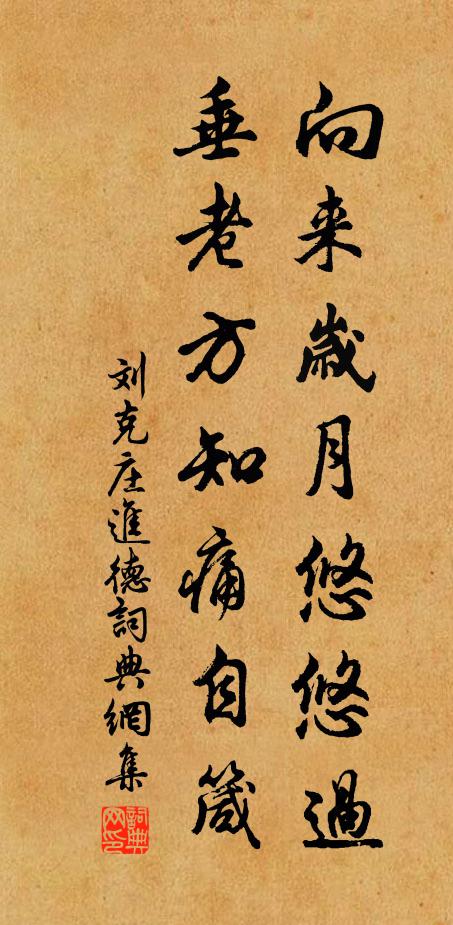 向来岁月悠悠過
垂老方知痛自箴
刘克庄進德詞典網集
詞典网印